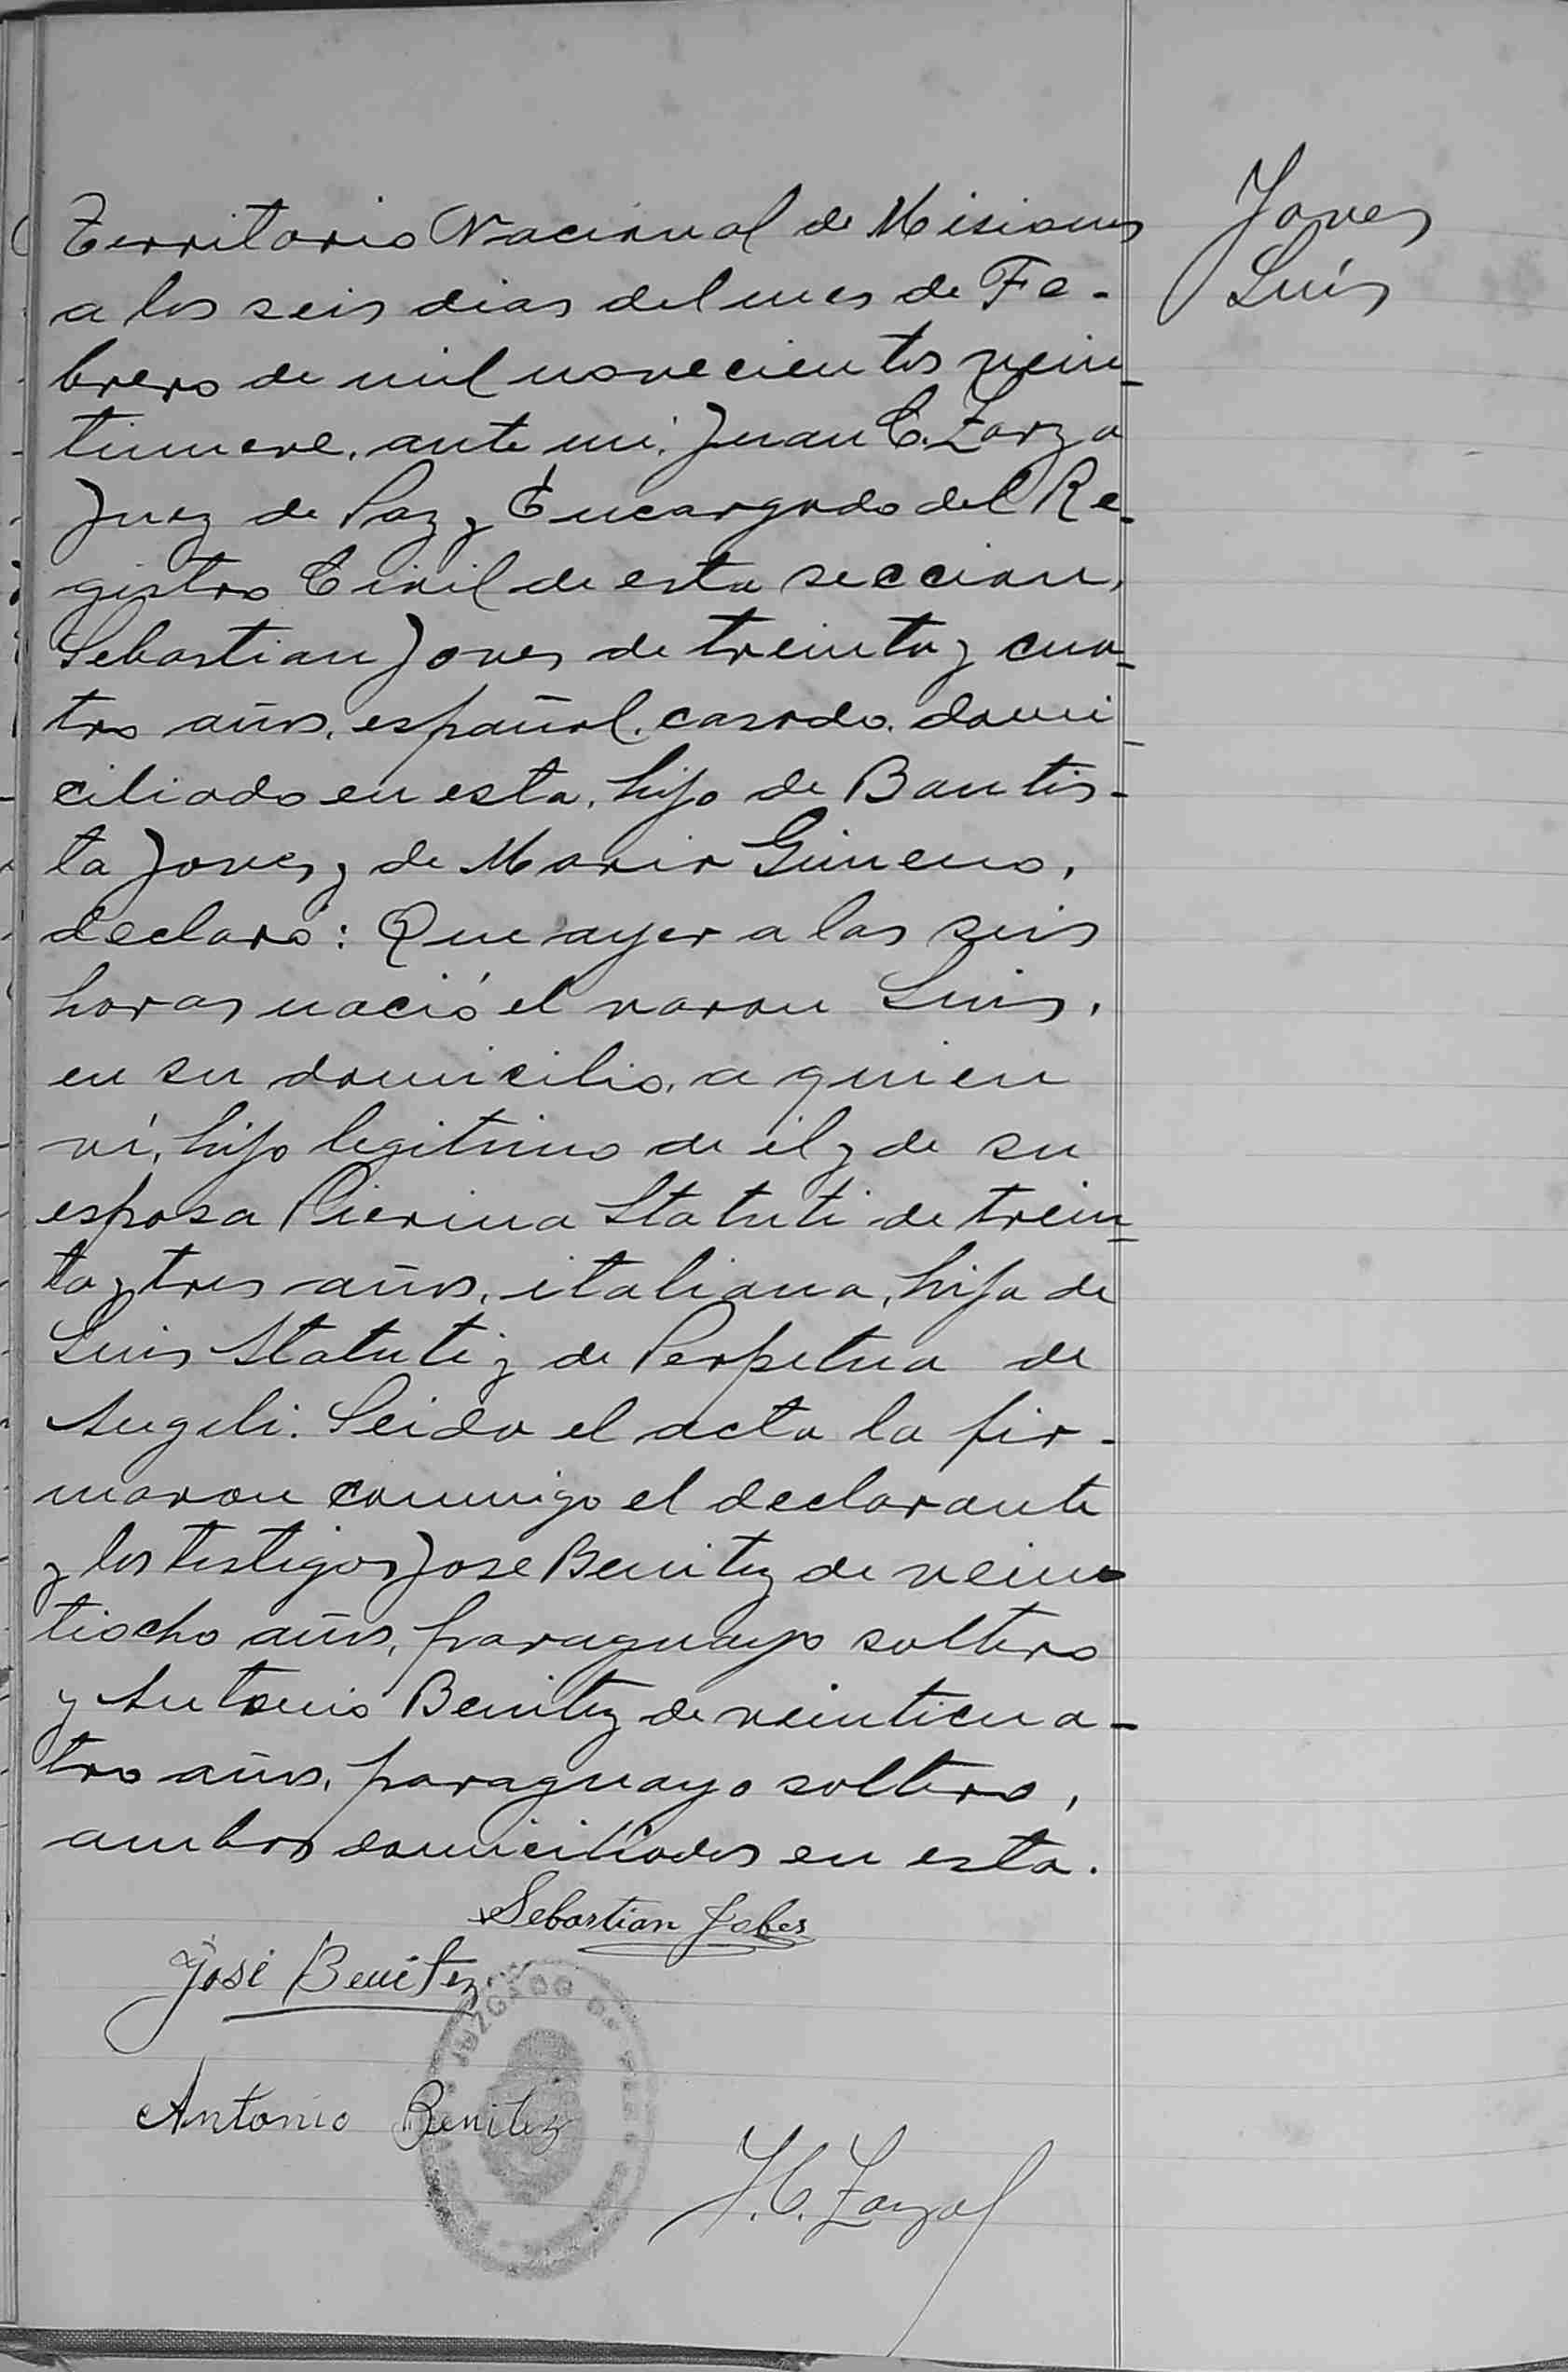 Territorio Nacional de Misiones
Joves
Luis
a los seis dias del mes de Fe-
brero de mil novecientos vein-
tinueve, ante mi, Juan C. Zarza
Juez de Paz y Encargado del Re-
gistro Civil de esta seccion,
Sebastian Joves de treinta y cua-
tro años, español, casado, domi-
ciliado en esta, hijo de Bautis-
ta Joves y de Maria Gimeno,
declaró: Que ayer a las seis
horas nació el varon Luis,
en su domicilio, a quien
ví, hijo legitimo de él y de su
esposa Pierina Statuti de trein-
ta y tres años, italiana, hija de
Luis Statuti y de Perpetua de
Angeli. Leida el acta la fir-
maron conmigo el declarante
y los testigos Jose Benitez de vein-
tiocho años, paraguayo soltero
y Antonio Benitez de veinticua-
tro años, paraguayo soltero,
ambos domiciliados en esta.
Sebastian Jobes
José Benitez
JUZGADO DE
Antonio Benitez
J. C. Zarza